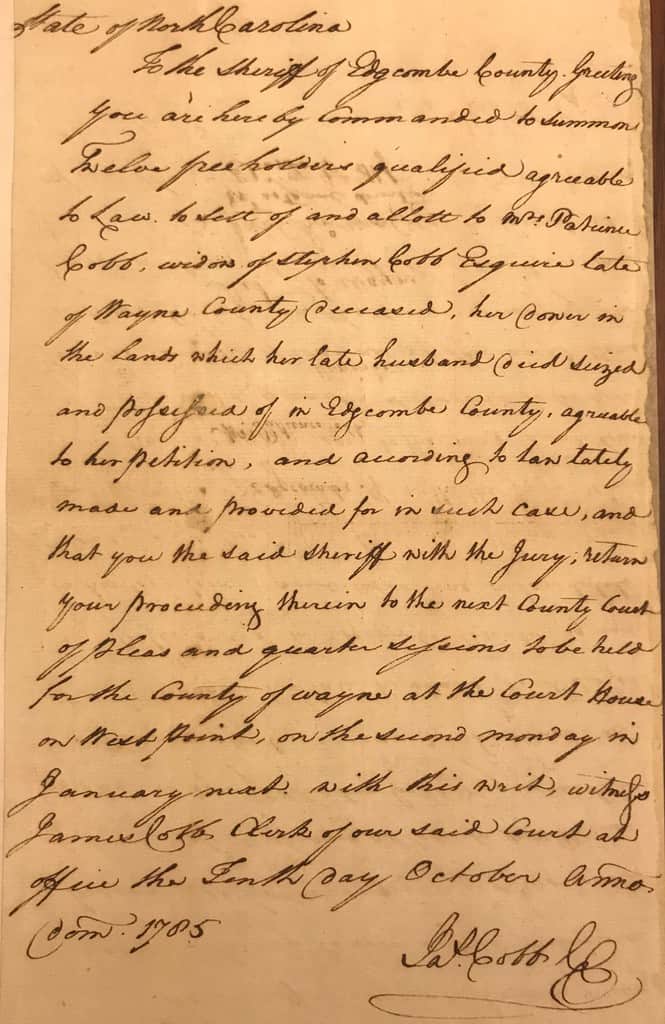 State of North Carolina
To the Sheriff of Edgcombe County. Greeting
You are hereby Commanded to summon
Twelve freeholders qualified agreeable
to Law. to sett of and allott to Mrs. Patience
Cobb, widow of Stephen Cobb Esquire late
of Wayne County deceased, her dower in
the Lands which her late husband died seized
and possessed of in Edgcombe County, agreable
to her petition, and according to Law lately
made and provided for in such case, and
that you the said Sheriff with the Jury, return
your proceeding therein to the next County Court
of Pleas and quarter sessions to be held
for the County of Wayne at the Court House
on West Point, on the second monday in
January next. with this writ, witness
James Cobb Clerk of our said Court at
office the Tenth day October Anno
Dom. 1785
Jas. Cobb CC